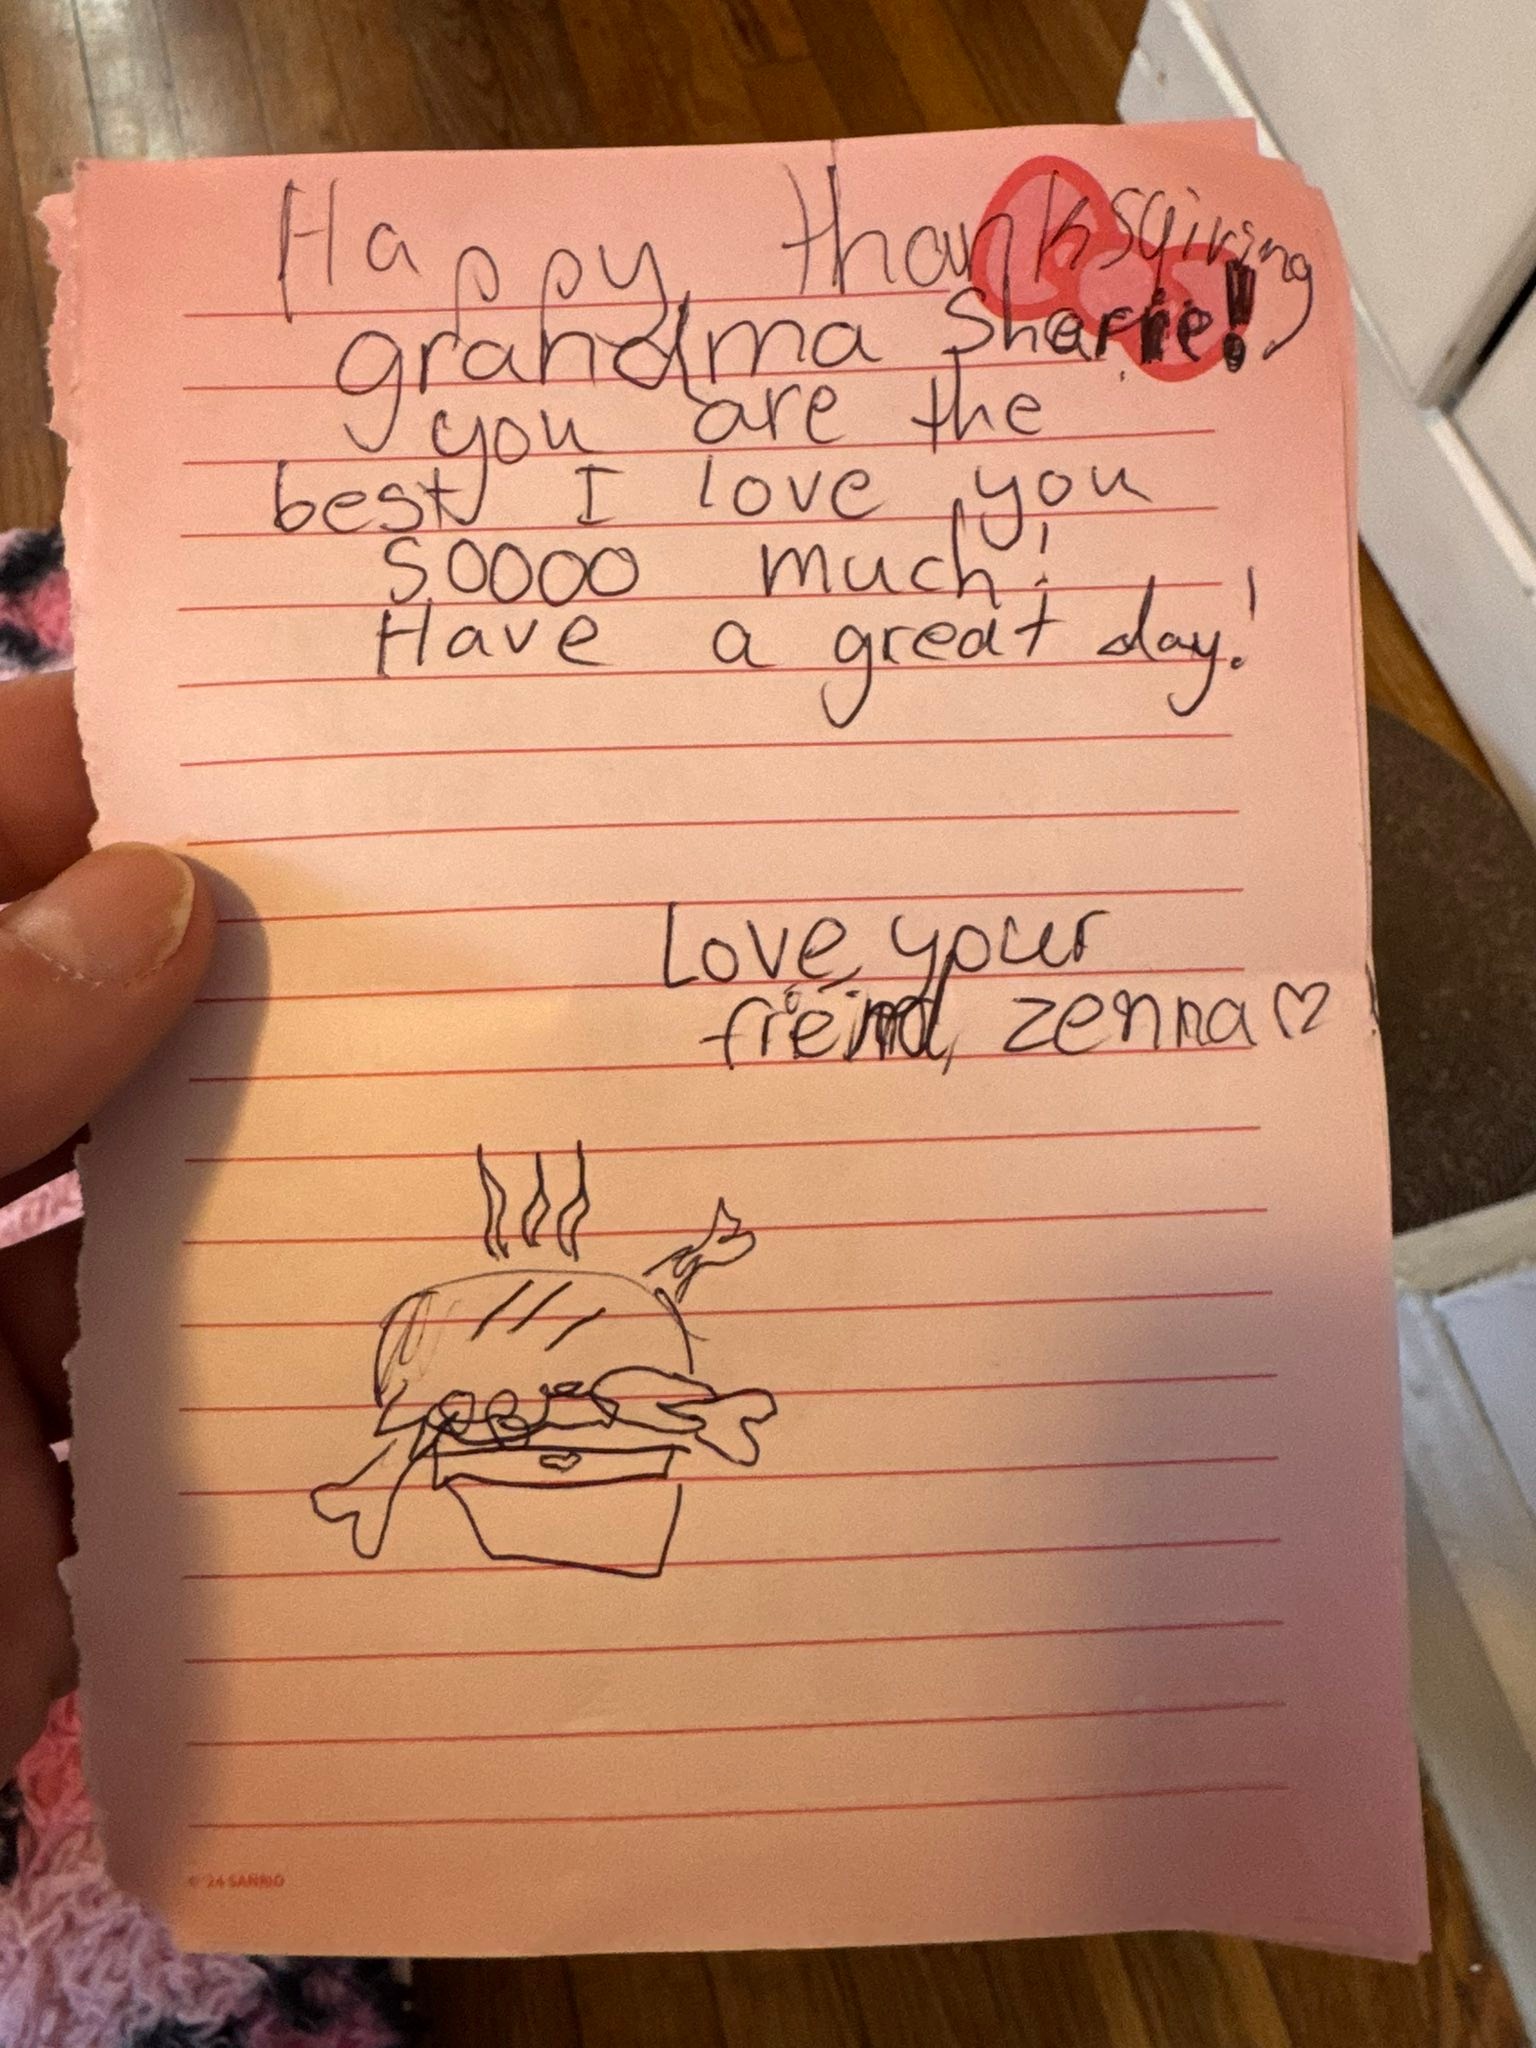 Happy thanksgiving
grandma Sharrie!
you are the
best I love you
SOOOO much!
Have a great day!
Love, your
freind, zenna♡
© '24 SANRIO